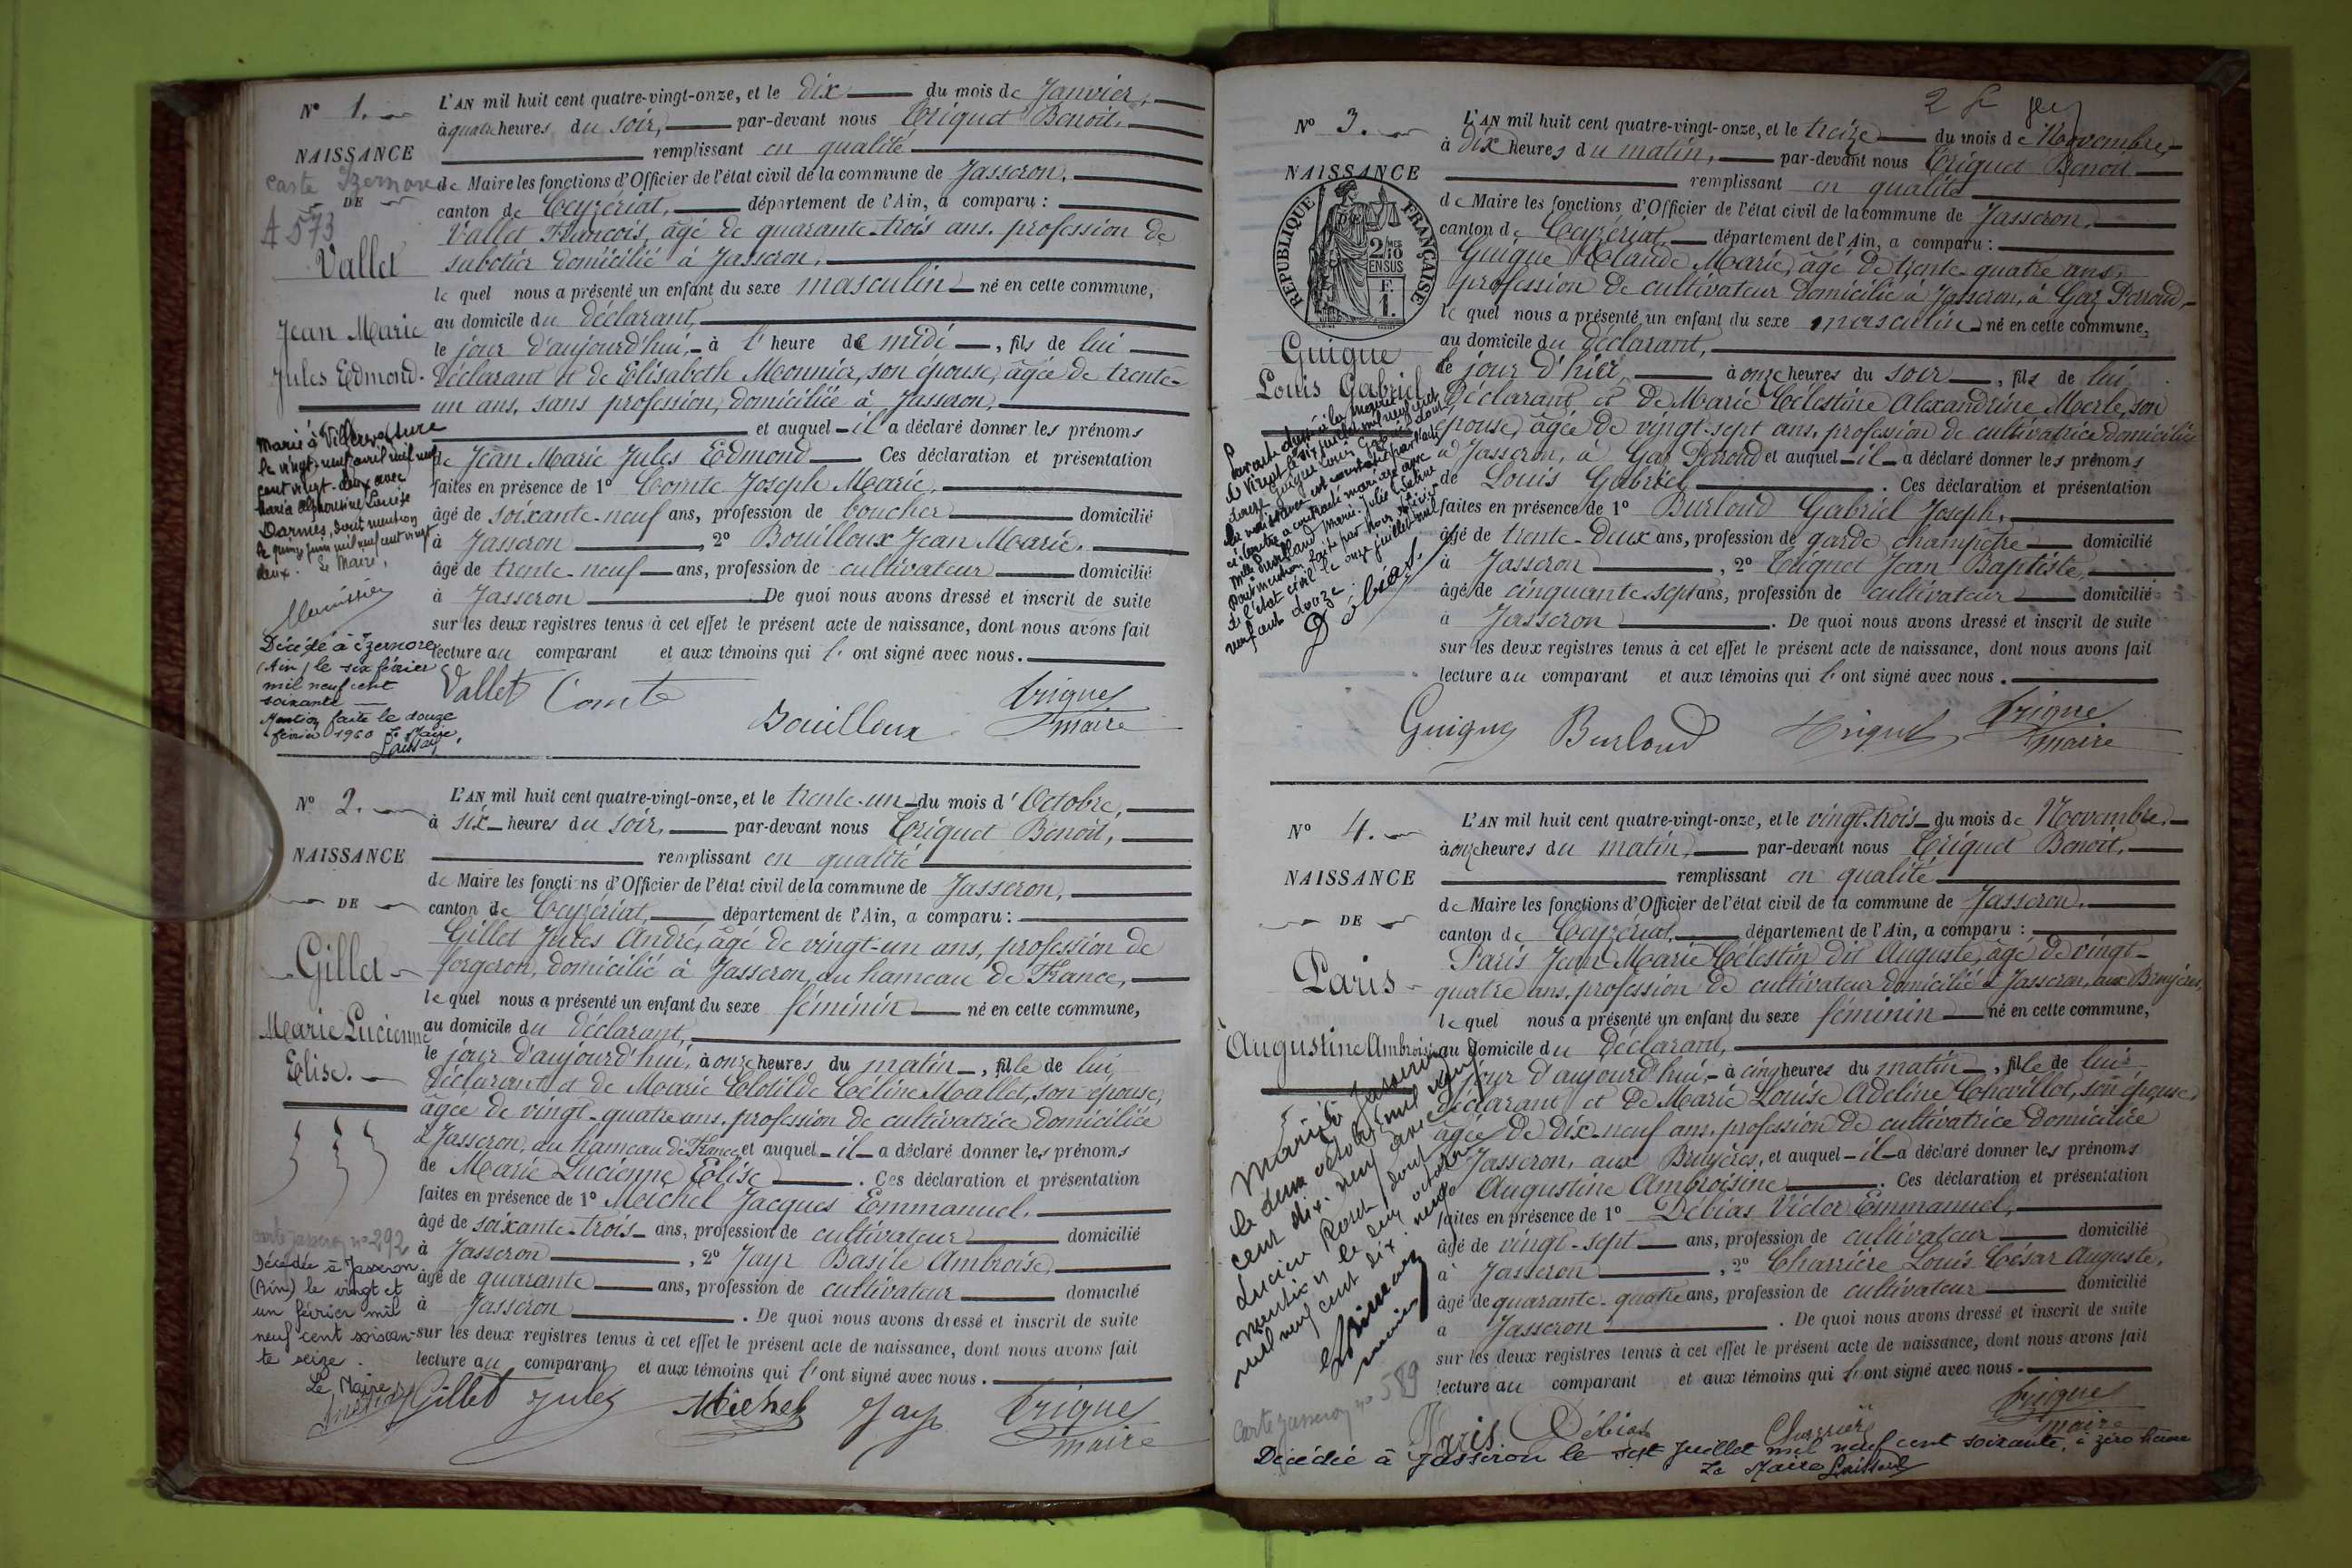 N° 1.
NAISSANCE
Carte Izernore
DE
A 573
Vallet
Jean Marie
Jules Edmond.
Marié à Villereversure
le vingt-neuf avril mil neuf
cent vingt-deux avec
Maria Alphonsine Louise
Darmes, dont mention
le quinze juin mil neuf cent vingt
deux. Le Maire,
Décédé à Izernore
(Ain) le six février
mil neuf cent
soixante
Mention faite le douze
février 1960 Le Maire,
L'AN mil huit cent quatre-vingt-onze, et le dix du mois de Janvier,
à quatre heures du soir, par-devant nous Triquet Benoit,
remplissant en qualité
de Maire les fonctions d'Officier de l'état civil de la commune de Jasseron,
canton de Ceyzériat, département de l'Ain, a comparu :
Vallet François, âgé de quarante-trois ans, profession de
sabotier domicilié à Jasseron,
le quel nous a présenté un enfant du sexe masculin né en cette commune,
au domicile du déclarant,
le jour d'aujourd'hui, à l'heure de midi, fils de lui
déclarant et de Elisabeth Monnier, son épouse, âgée de trente-
un ans, sans profession, domiciliée à Jasseron,
et auquel il a déclaré donner les prénoms
de Jean Marie Jules Edmond Ces déclaration et présentation
faites en présence de 1° Comte Joseph Marie,
âgé de soixante-neuf ans, profession de boucher domicilié
à Jasseron, 2° Bouilloux Jean Marie,
âgé de trente-neuf ans, profession de cultivateur domicilié
à Jasseron. De quoi nous avons dressé et inscrit de suite
sur les deux registres tenus à cet effet le présent acte de naissance, dont nous avons fait
lecture au comparant et aux témoins qui l'ont signé avec nous.
Vallet Comte Bouilloux Triquet
maire
N° 2.
NAISSANCE
DE
Gillet
Marie Lucienne
Elise.
Carte Jasseron n° 292
Décédée à Jasseron
(Ain) le vingt et
un février mil
neuf cent soixan-
te seize.
Le Maire,
L'AN mil huit cent quatre-vingt-onze, et le trente-un du mois d'Octobre,
à six heures du soir, par-devant nous Triquet Benoit,
remplissant en qualité
de Maire les fonctions d'Officier de l'état civil de la commune de Jasseron,
canton de Ceyzériat, département de l'Ain, a comparu :
Gillet Jules André, âgé de vingt-un ans, profession de
forgeron, domicilié à Jasseron, au hameau de France,
le quel nous a présenté un enfant du sexe féminin né en cette commune,
au domicile du déclarant,
le jour d'aujourd'hui, à onze heures du matin, fille de lui
déclarant et de Marie Clotilde Céline Mallet, son épouse,
âgée de vingt-quatre ans, profession de cultivatrice domiciliée
à Jasseron, au hameau de France, et auquel il a déclaré donner les prénoms
de Marie Lucienne Elise. Ces déclaration et présentation
faites en présence de 1° Michel Jacques Emmanuel,
âgé de soixante-trois ans, profession de cultivateur domicilié
à Jasseron, 2° Jayr Basile Ambroise,
âgé de quarante ans, profession de cultivateur domicilié
à Jasseron. De quoi nous avons dressé et inscrit de suite
sur les deux registres tenus à cet effet le présent acte de naissance, dont nous avons fait
lecture au comparant et aux témoins qui l'ont signé avec nous.
Gillet Jules Michel Jayr Triquet
maire
N° 3.
NAISSANCE
RÉPUBLIQUE FRANÇAISE
2/10
EN SUS
F.
1.
Guigue
Louis Gabriel
L'AN mil huit cent quatre-vingt-onze, et le treize du mois de Novembre,
à dix heures du matin, par-devant nous Triquet Benoit
remplissant en qualité
de Maire les fonctions d'Officier de l'état civil de la commune de Jasseron,
canton de Ceyzériat, département de l'Ain, a comparu :
Guigue Claude Marie, âgé de trente-quatre ans,
profession de cultivateur domicilié à Jasseron, à Gaz Perroud,
le quel nous a présenté un enfant du sexe masculin né en cette commune,
au domicile du déclarant,
le jour d'hier, à onze heures du soir, fils de lui
déclarant et de Marie Célestine Alexandrine Merle, son
épouse, âgée de vingt-sept ans, profession de cultivatrice domiciliée
à Jasseron, à Gaz Perroud et auquel il a déclaré donner les prénoms
de Louis Gabriel. Ces déclaration et présentation
faites en présence de 1° Burloud Gabriel Joseph,
âgé de trente-deux ans, profession de garde champêtre domicilié
à Jasseron, 2° Triquet Jean Baptiste,
âgé de cinquante-sept ans, profession de cultivateur domicilié
à Jasseron. De quoi nous avons dressé et inscrit de suite
sur les deux registres tenus à cet effet le présent acte de naissance, dont nous avons fait
lecture au comparant et aux témoins qui l'ont signé avec nous.
Guigue Burloud Triquet Triquet
maire
N° 4.
NAISSANCE
DE
Paris
Augustine Ambroisine
Mariée à Jasseron
le deux octobre mil neuf
cent dix-neuf avec
Lucien dont
mention le octobre
mil neuf cent dix-neuf
maire
Carte Jasseron n° 589
L'AN mil huit cent quatre-vingt-onze, et le vingt-trois du mois de Novembre,
à onze heures du matin, par-devant nous Triquet Benoit,
remplissant en qualité
de Maire les fonctions d'Officier de l'état civil de la commune de Jasseron,
canton de Ceyzériat, département de l'Ain, a comparu :
Paris Jean Marie Célestin dit Auguste, âgé de vingt-
quatre ans, profession de cultivateur domicilié à Jasseron, aux Bruyères,
le quel nous a présenté un enfant du sexe féminin né en cette commune,
au domicile du déclarant,
le jour d'aujourd'hui, à cinq heures du matin, fille de lui
déclarant et de Marie Louise Adeline Chevillot, son épouse,
âgée de dix-neuf ans, profession de cultivatrice domiciliée
à Jasseron, aux Bruyères, et auquel il a déclaré donner les prénoms
de Augustine Ambroisine. Ces déclaration et présentation
faites en présence de 1° Débias Victor Emmanuel,
âgé de vingt-sept ans, profession de cultivateur domicilié
à Jasseron, 2° Charrière Louis César Auguste,
âgé de quarante-quatre ans, profession de cultivateur domicilié
à Jasseron. De quoi nous avons dressé et inscrit de suite
sur les deux registres tenus à cet effet le présent acte de naissance, dont nous avons fait
lecture au comparant et aux témoins qui l'ont signé avec nous.
Paris Débias Charrière Triquet
maire
Décédée à Jasseron le sept Juillet mil neuf cent soixante, à zéro heure
Le Maire